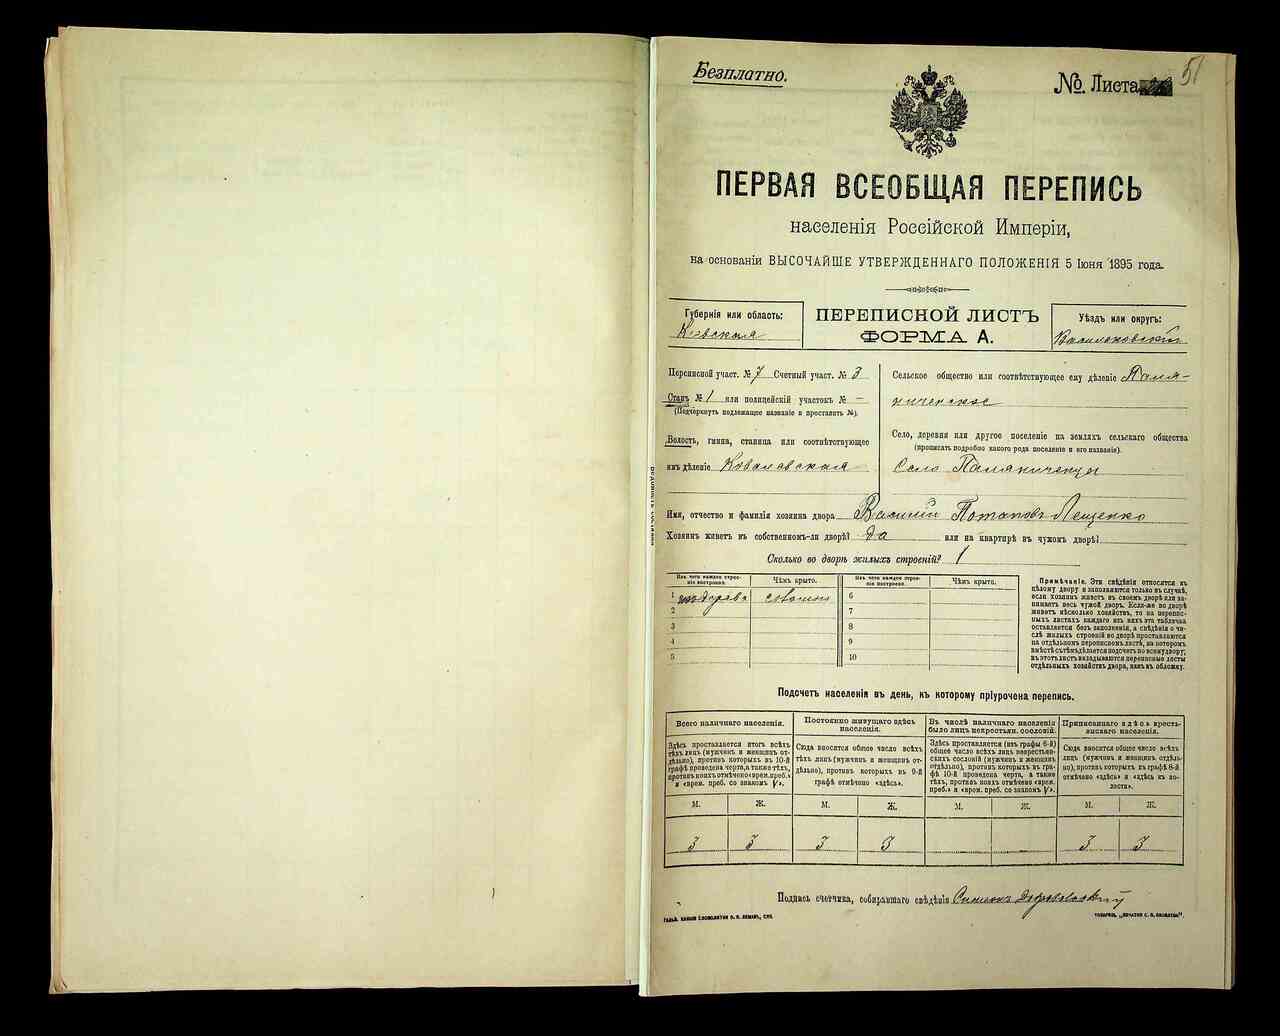 Безплатно.
№. Листа 51
ПЕРВАЯ ВСЕОБЩАЯ ПЕРЕПИСЬ
населенія Россійской Имперіи,
на основаніи ВЫСОЧАЙШЕ УТВЕРЖДЕННАГО ПОЛОЖЕНІЯ 5 Іюня 1895 года.
Губернія или область:
Кіевская
ПЕРЕПИСНОЙ ЛИСТЪ
ФОРМА А.
Уѣздъ или округъ:
Васильковскій
Переписной участ. № 7 Счетный участ. № 3
Станъ № 1 или полицейскій участокъ № —
(Подчеркнуть подлежащее названіе и проставить №).
Волость, гмина, станица или соотвѣтствующее
имъ дѣленіе Ковалевская
Сельское общество или соотвѣтствующее ему дѣленіе Паля-
ниченское
Село, деревня или другое поселеніе на земляхъ сельскаго общества
(прописать подробно какого рода поселеніе и его названіе).
Село Паляниченцы
Имя, отчество и фамилія хозяина двора Василій Потаповъ Лещенко
Хозяинъ живетъ въ собственномъ-ли дворѣ? да или на квартирѣ въ чужомъ дворѣ?
Сколько во дворѣ жилыхъ строеній? 1
Изъ чего каждое строе-
ніе построено.
Чѣмъ крыто.
Изъ чего каждое строе-
ніе построено.
Чѣмъ крыто.
1 изъ дерева соломою 6
2 7
3 8
4 9
5 10
Примѣчаніе. Эти свѣдѣнія относятся къ
цѣлому двору и заполняются только въ случаѣ,
если хозяинъ живетъ въ своемъ дворѣ или за-
нимаетъ весь чужой дворъ. Если-же во дворѣ
живетъ нѣсколько хозяйствъ, то на перепис-
ныхъ листахъ каждаго изъ нихъ эта табличка
оставляется безъ заполненія, а свѣдѣнія о чи-
слѣ жилыхъ строеній во дворѣ проставляются
на отдѣльномъ переписномъ листѣ, на которомъ
вмѣстѣ съ тѣмъ дѣлается подсчетъ по всему двору;
въ этотъ листъ вкладываются переписные листы
отдѣльныхъ хозяйствъ двора, какъ въ обложку.
Подсчетъ населенія въ день, къ которому пріурочена перепись.
Всего наличнаго населенія.
Здѣсь проставляется итогъ всѣхъ
тѣхъ лицъ (мужчинъ и женщинъ от-
дѣльно), противъ которыхъ въ 10-й
графѣ проведена черта, а также тѣхъ,
противъ коихъ отмѣчено «врем. преб.»
и «врем. преб. со знакомъ V».
Постоянно живущаго здѣсь
населенія.
Сюда вносится общее число всѣхъ
тѣхъ лицъ (мужчинъ и женщинъ от-
дѣльно), противъ которыхъ въ 9-й
графѣ отмѣчено «здѣсь».
Въ числѣ наличнаго населенія
было лицъ некрестьян. сословій.
Здѣсь проставляется (изъ графы 6-й)
общее число всѣхъ лицъ некрестьян-
скихъ сословій (мужчинъ и женщинъ
отдѣльно), противъ которыхъ въ гра-
фѣ 10-й проведена черта, а также
тѣхъ, противъ коихъ отмѣчено «врем.
преб.» и «врем. преб. со знакомъ V».
Приписаннаго здѣсь кресть-
янскаго населенія.
Сюда вносится общее число всѣхъ
лицъ (мужчинъ и женщинъ отдѣль-
но), противъ которыхъ въ графѣ 8-й
отмѣчено «здѣсь» и «здѣсь къ во-
лости».
М. Ж. М. Ж. М. Ж. М. Ж.
3 3 3 3 3 3
Подпись счетчика, собиравшаго свѣдѣнія